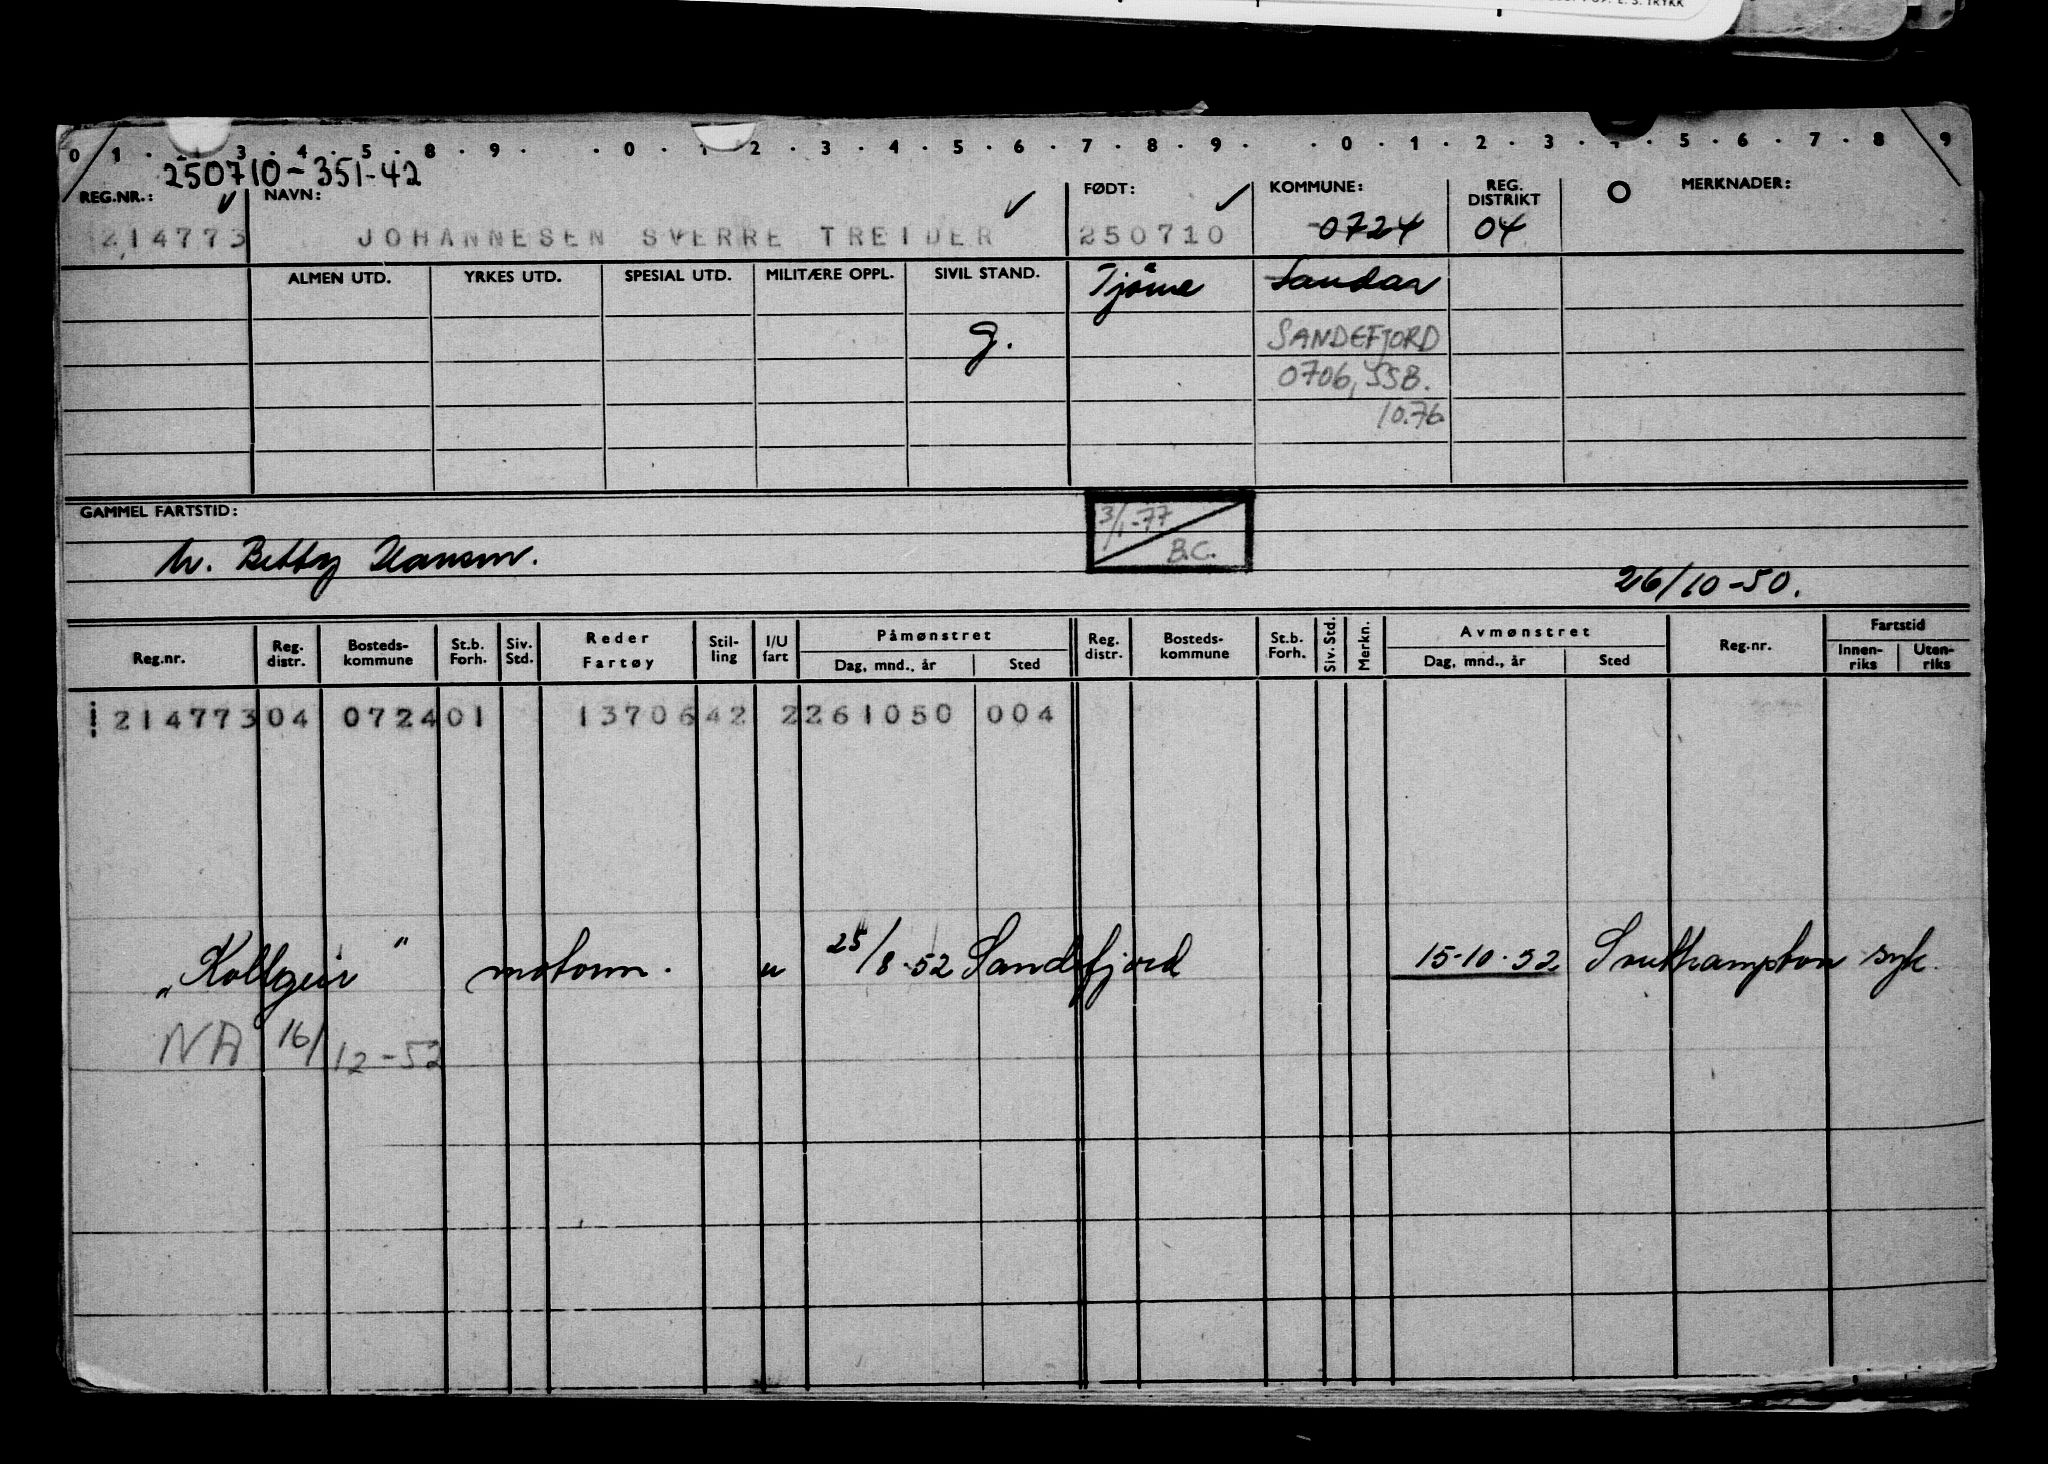 E. S. TRYKK
0 1 . 3 . 4 . 5 . 8 . 9 . . 0 . 1 . 2 . 3 . 4 . 5 . 6 . 7 . 8 . 9 . . 0 . 1 . 2 . 3 . 4 . 5 . 6 . 7 . 8 9
250710-351-42
REG.NR.: NAVN: FØDT: KOMMUNE: REG. DISTRIKT MERKNADER:
214773 JOHANNESEN SVERRE TREIDER 250710 0724 04
ALMEN UTD. YRKES UTD. SPESIAL UTD. MILITÆRE OPPL. SIVIL STAND. Tjöme Sandar
g. SANDEFJORD
0706, SSB.
10.76
GAMMEL FARTSTID: 3/1-77
B.C.
h. Betty Hansen.
26/10-50.
Reg.nr. Reg. distr. Bosteds-kommune St.b. Forh. Siv. Std. Reder Fartøy Stil-ling I/U fart Påmønstret Dag, mnd., år Sted Reg. distr. Bosteds-kommune St.b. Forh. Siv. Std. Merkn. Avmønstret Dag, mnd., år Sted Reg.nr. Fartstid Innen-riks Uten-riks
214773 04 0724 01 13706 42 2 261050 004
"Kollgeir" motorm. u 25/8-52 Sandefjord 15-10-52 Southampton syk.
NA 16/12-52